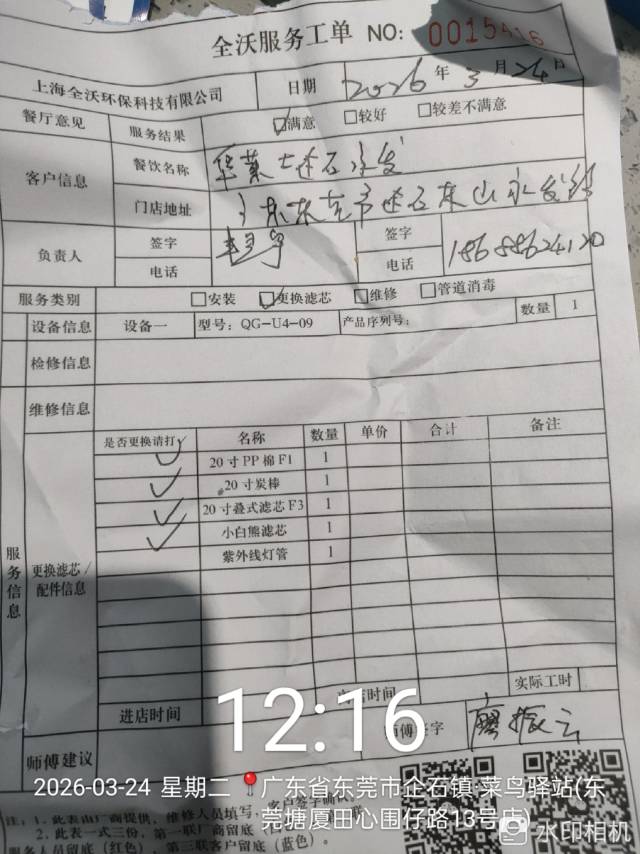 全沃服务工单 NO: 0015416
上海全沃环保科技有限公司 日期 2026年3月24日
餐厅意见 服务结果 ☑满意 □较好 □较差不满意
客户信息 餐饮名称 华莱士企石永发
门店地址 广东东莞市企石东山永发
负责人 签字 签字
电话 电话 18688624120
服务类别 □安装 ☑更换滤芯 □维修 □管道消毒
设备信息 设备一 型号:QG-U4-09 产品序列号: 数量 1
检修信息
维修信息
服务信息 更换滤芯/配件信息 是否更换请打√ 名称 数量 单价 合计 备注
✓ 20寸PP棉F1 1
✓ 20寸炭棒 1
✓ 20寸叠式滤芯F3 1
✓ 小白熊滤芯 1
紫外线灯管 1
实际工时
进店时间 时间
师傅建议 师傅签字 廖振云
12:16
2026-03-24 星期二 广东省东莞市企石镇·菜鸟驿站(东
莞塘厦田心围仔路13号店)
注:1、此表由厂商提供,维修人员填写,客户签字确认
2、此表一式三份,第一联厂商留底
服务人员留底(红色)、第三联客户留底(蓝色)。
水印相机